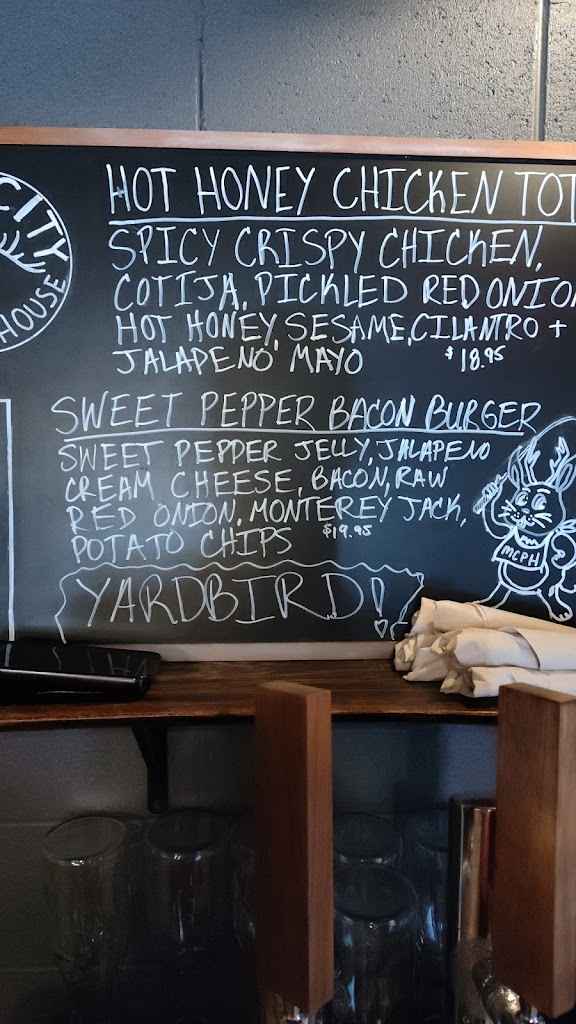 CITY
HOUSE
HOT HONEY CHICKEN TOT
SPICY CRISPY CHICKEN,
COTIJA, PICKLED RED ONION
HOT HONEY, SESAME, CILANTRO +
JALAPENO MAYO $18.95
SWEET PEPPER BACON BURGER
SWEET PEPPER JELLY, JALAPENO
CREAM CHEESE, BACON, RAW
RED ONION, MONTEREY JACK,
POTATO CHIPS $19.95
YARDBIRD!
MCPH